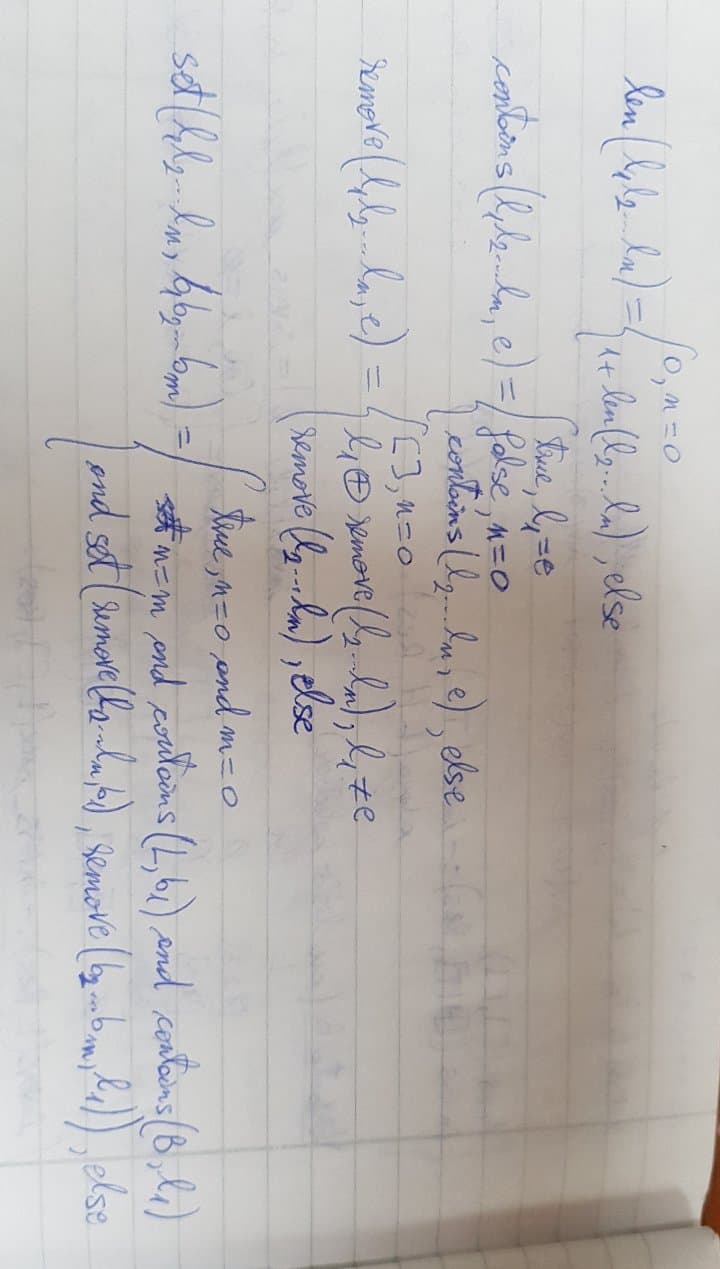 len(l₁l₂...lₙ) = { 0, n=0
1+ len(l₂...lₙ), else
contains(l₁l₂...lₙ, e) = { true, l₁=e
false, n=0
contains(l₂...lₙ, e), else
remove(l₁l₂...lₙ, e) = { [], n=0
l₁ ⊕ remove(l₂...lₙ), l₁≠e
remove(l₂...lₙ), else
set(l₁l₂...lₙ, b₁b₂...bₘ) = { true, n=0 and m=0
n=m and contains(L, b₁) and contains(B, l₁)
and set(remove(l₂...lₙ, b₁), remove(b₂...bₘ, l₁)), else